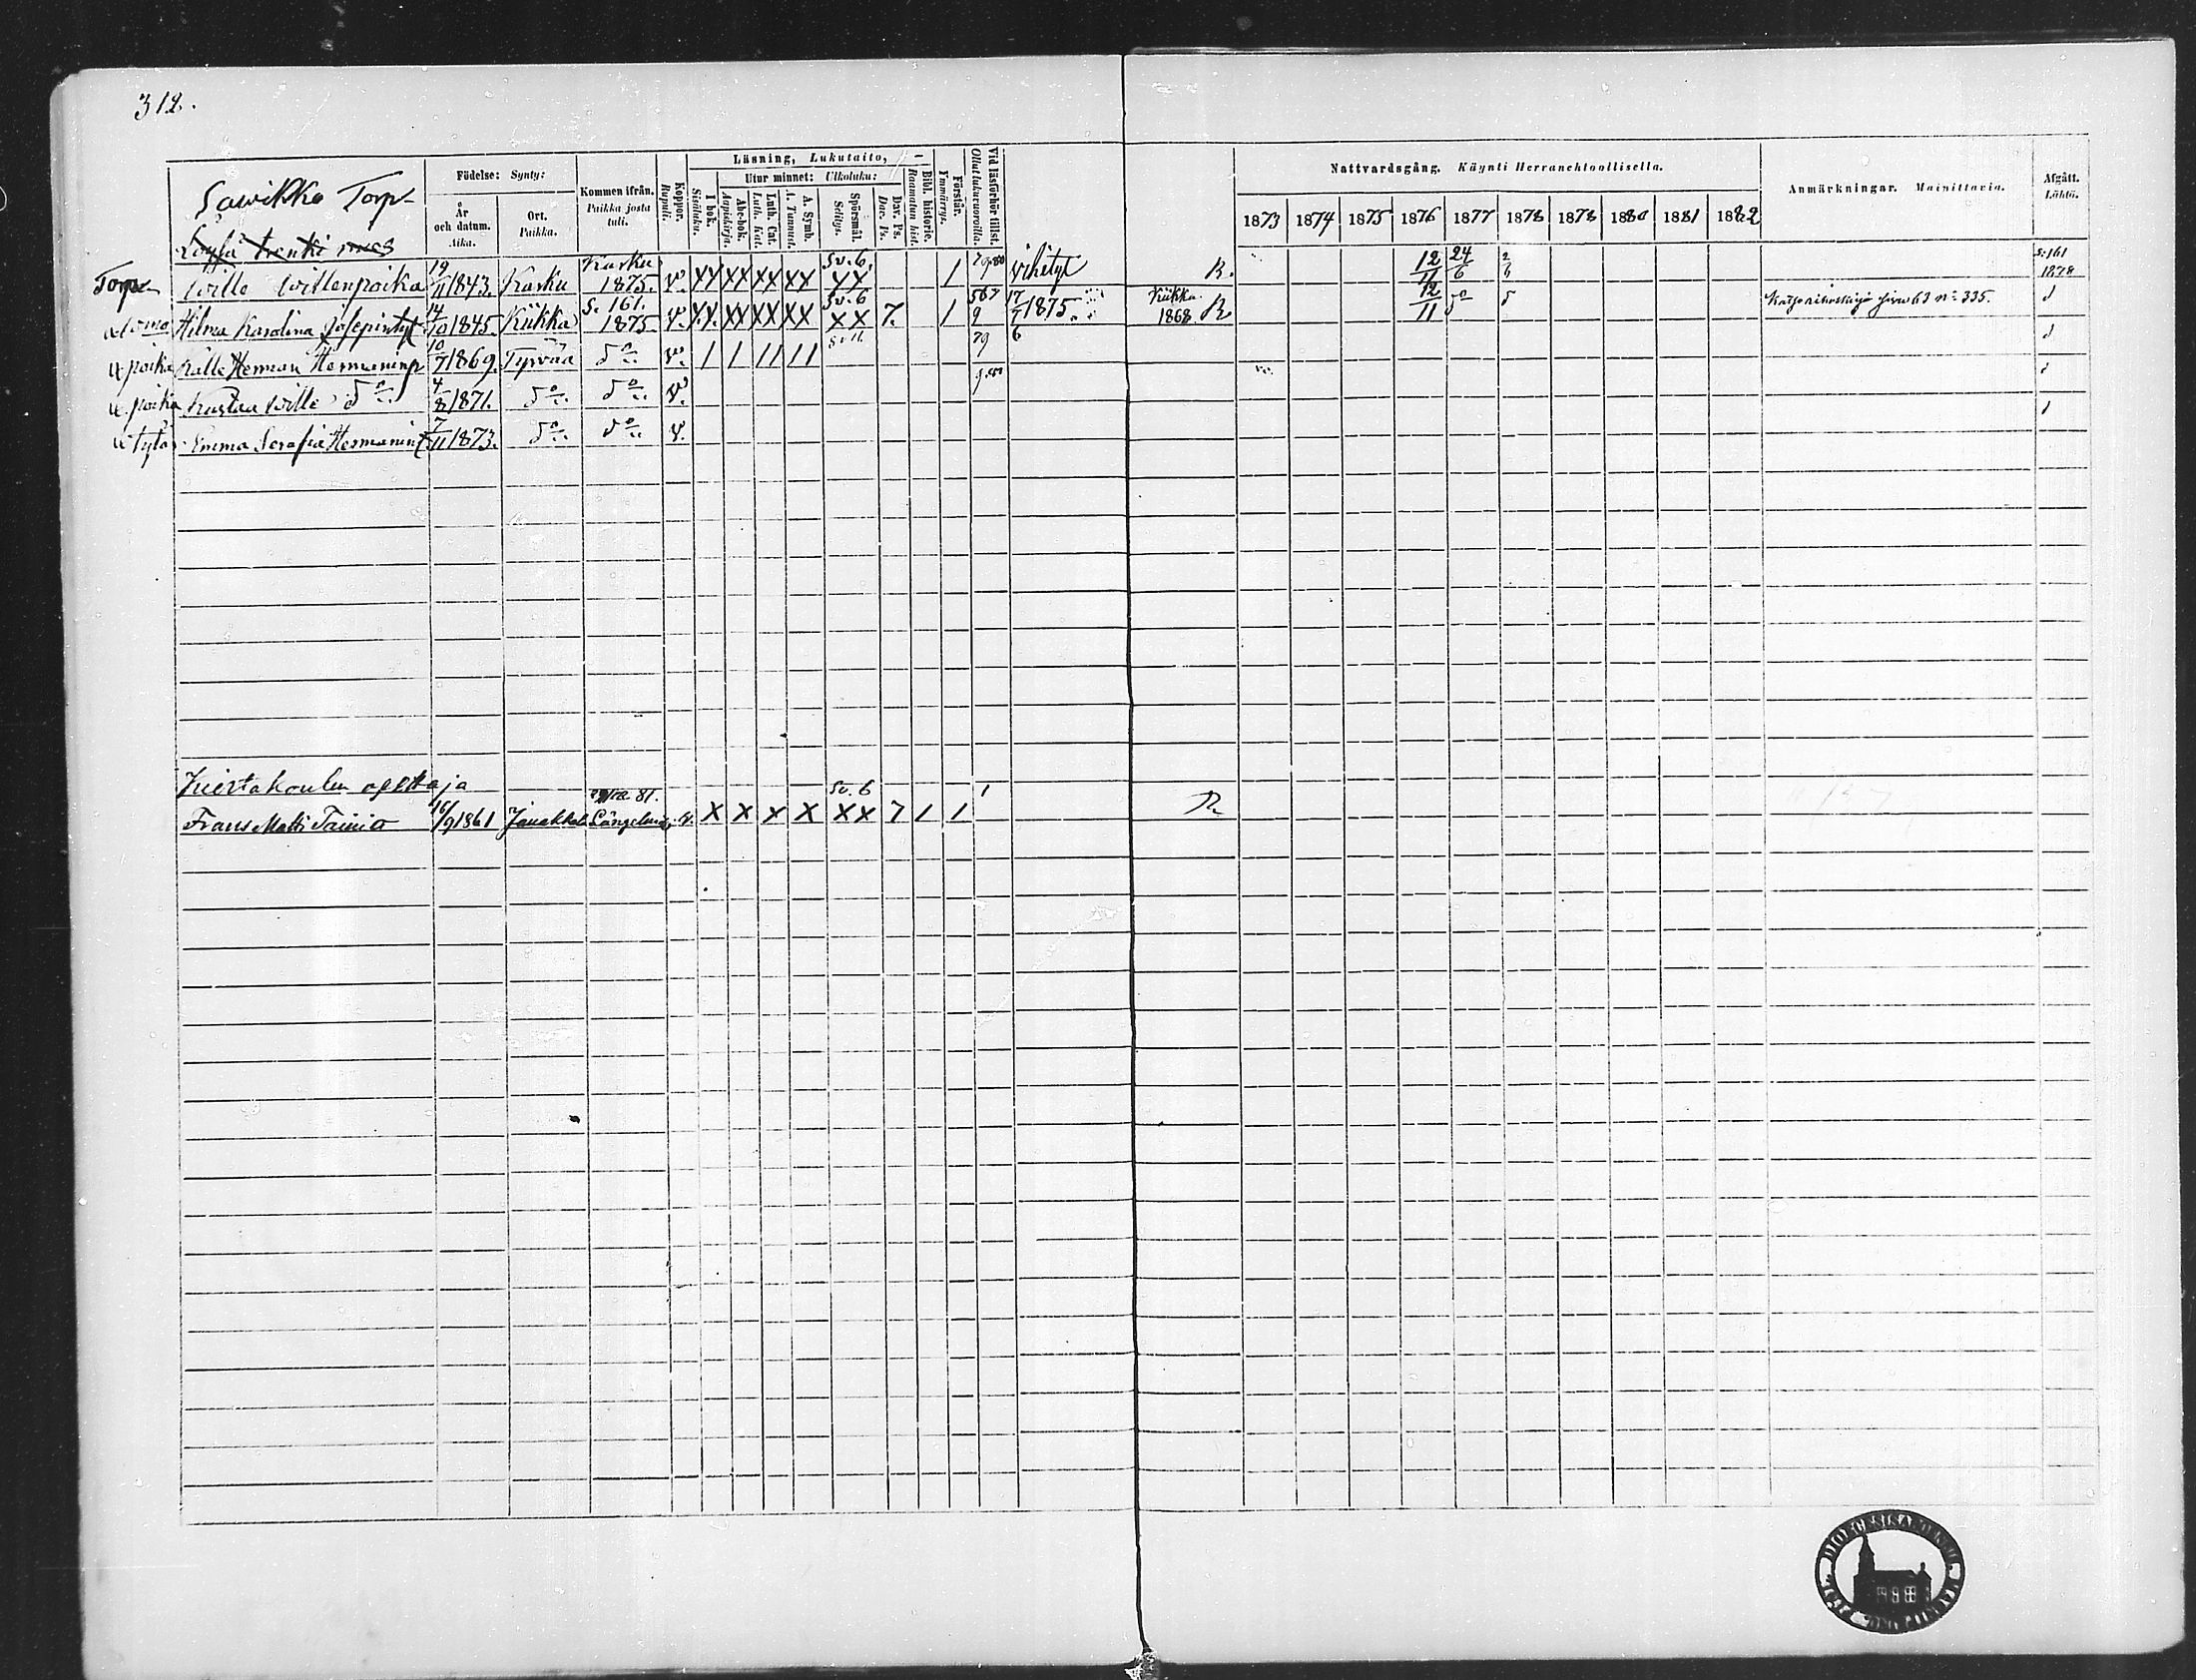 312.
Sawikko Torp
Födelse: Synty:
År och datum. Aika.
Ort. Paikka.
Kommen ifrån. Paikka josta tuli.
Koppor. Rupuli.
Läsning, Lukutaito,
I bok. Sisäluku.
Utur minnet: Ulkoluku:
Abc-bok. Aapiskirja.
Luth. Cat. Luth. Kat.
A. Symb. A. Tunnust.
Spörsmål. Selitys.
Dav. Ps. Dav. Ps.
Bibl. historie. Raamatun hist.
Förstår. Ymmärrys.
Vid läsförhör tillst. Ollut lukuvuoroilla.
Nattvardsgång. Käynti Herranehtoollisella.
1873 1874 1875 1876 1877 1878 1878 1880 1881 1882
Anmärkningar. Mainittavia.
Afgått. Lähtö.
Torp. Wille Willenpoika 19/11 1843. Karku Karku 1875. v. XX XX XX XX Sv. 6. XX 1 vihetyt R. 12/11 24/6 2/6 S. 161 1878
Hilma Karolina Josepintyt 14/10 1845. Kiikka S. 161. 1875. v. XX XX XX XX Sv. 6 XX 7. 1 567 9 17/7 1875. Kiikka 1868. R. 12/11 do
poika Kalle Herman Hermaninp 10/7 1869. Tyrvää do v. 1 1 11 11 79 6
poika Kustaa Wille do 4/8 1871. do do v.
tytär Emma Serafia Hermanint 7/11 1873. do do v.
Kiertokoulun opettaja
Frans Matti Tainio 16/9 1861 Janakkala Längelmäki 81. v. X X X X Sv. 6 XX 7 1 1 1 R